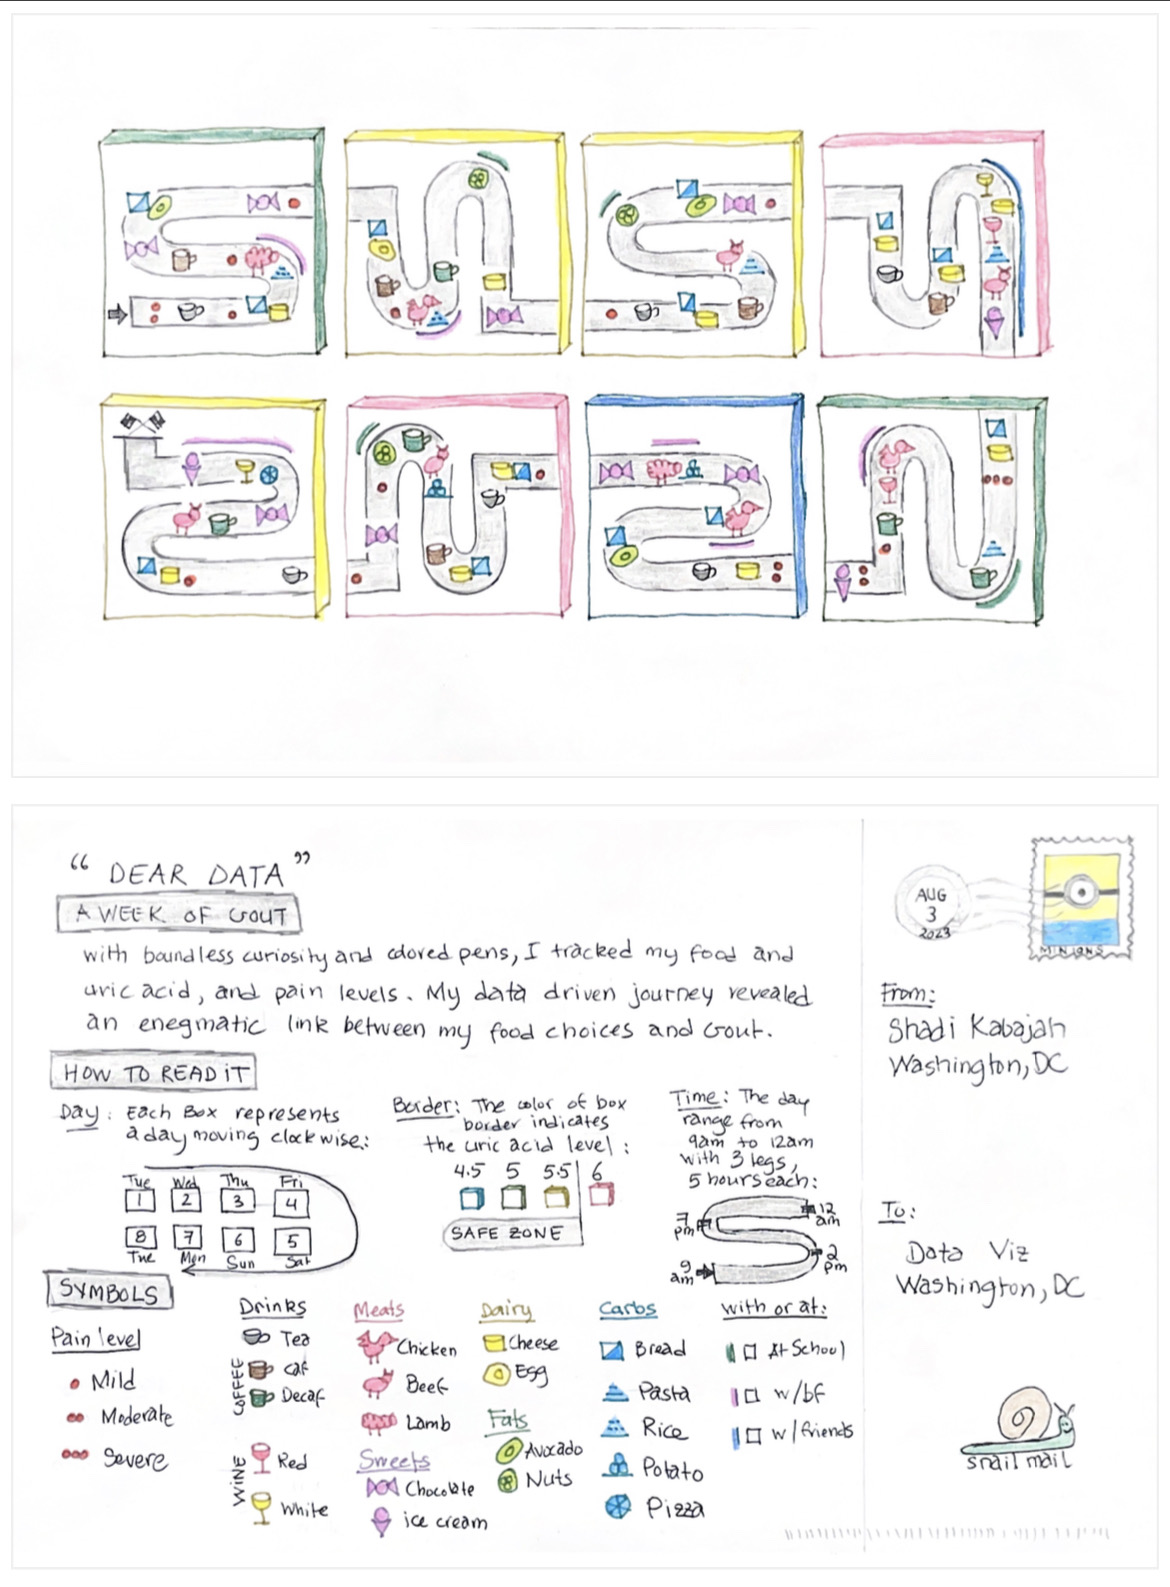 “ DEAR DATA ”
A WEEK OF GOUT
with boundless curiosity and colored pens, I tracked my food and
uric acid, and pain levels. My data driven journey revealed
an enegmatic link between my food choices and Gout.
HOW TO READ iT
Day: Each Box represents
a day moving clockwise:
Tue Wed Thu Fri
1 2 3 4
8 7 6 5
Tue Mon Sun Sat
Border: The color of box
border indicates
the uric acid level:
4.5 5 5.5 6
SAFE ZONE
Time: The day
range from
9am to 12am
with 3 legs,
5 hours each:
12 am
7 pm
2 pm
9 am
SYMBOLS
Pain level
Mild
Moderate
Severe
Drinks
Tea
COFFEE
Caf
Decaf
WiNE
Red
White
Meats
Chicken
Beef
Lamb
Sweets
Chocolate
ice cream
Dairy
Cheese
Egg
Fats
Avocado
Nuts
Carbs
Bread
Pasta
Rice
Potato
Pizza
with or at:
At School
w/bf
w/friends
AUG
3
2023
MINIONS
From:
Shadi Kabajah
Washington, DC
To:
Data Viz
Washington, DC
snail mail